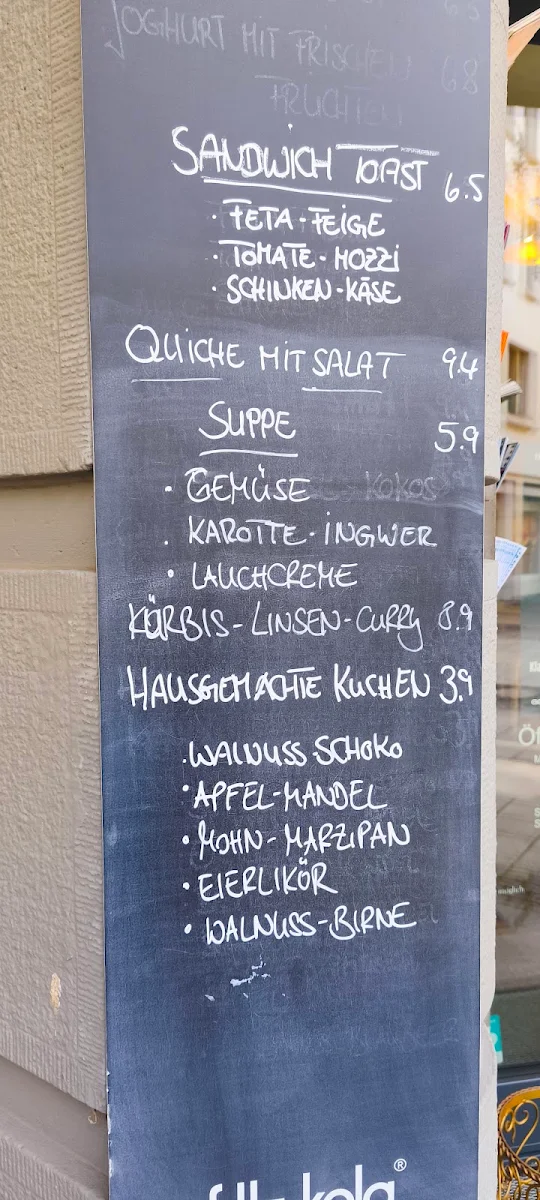 JOGHURT MIT FRISCHEN 6.8
FRÜCHTEN
SANDWICH TOAST 6.5
· FETA-FEIGE
· TOMATE-MOZZI
· SCHINKEN-KÄSE
QUICHE MIT SALAT 9.4
SUPPE 5.9
· GEMÜSE KOKOS
· KAROTTE-INGWER
· LAUCHCREME
KÜRBIS-LINSEN-CURRY 8.9
HAUSGEMACHTE KUCHEN 3.9
· WALNUSS-SCHOKO
· APFEL-MANDEL
· MOHN-MARZIPAN
· EIERLIKÖR
· WALNUSS-BIRNE
kola®